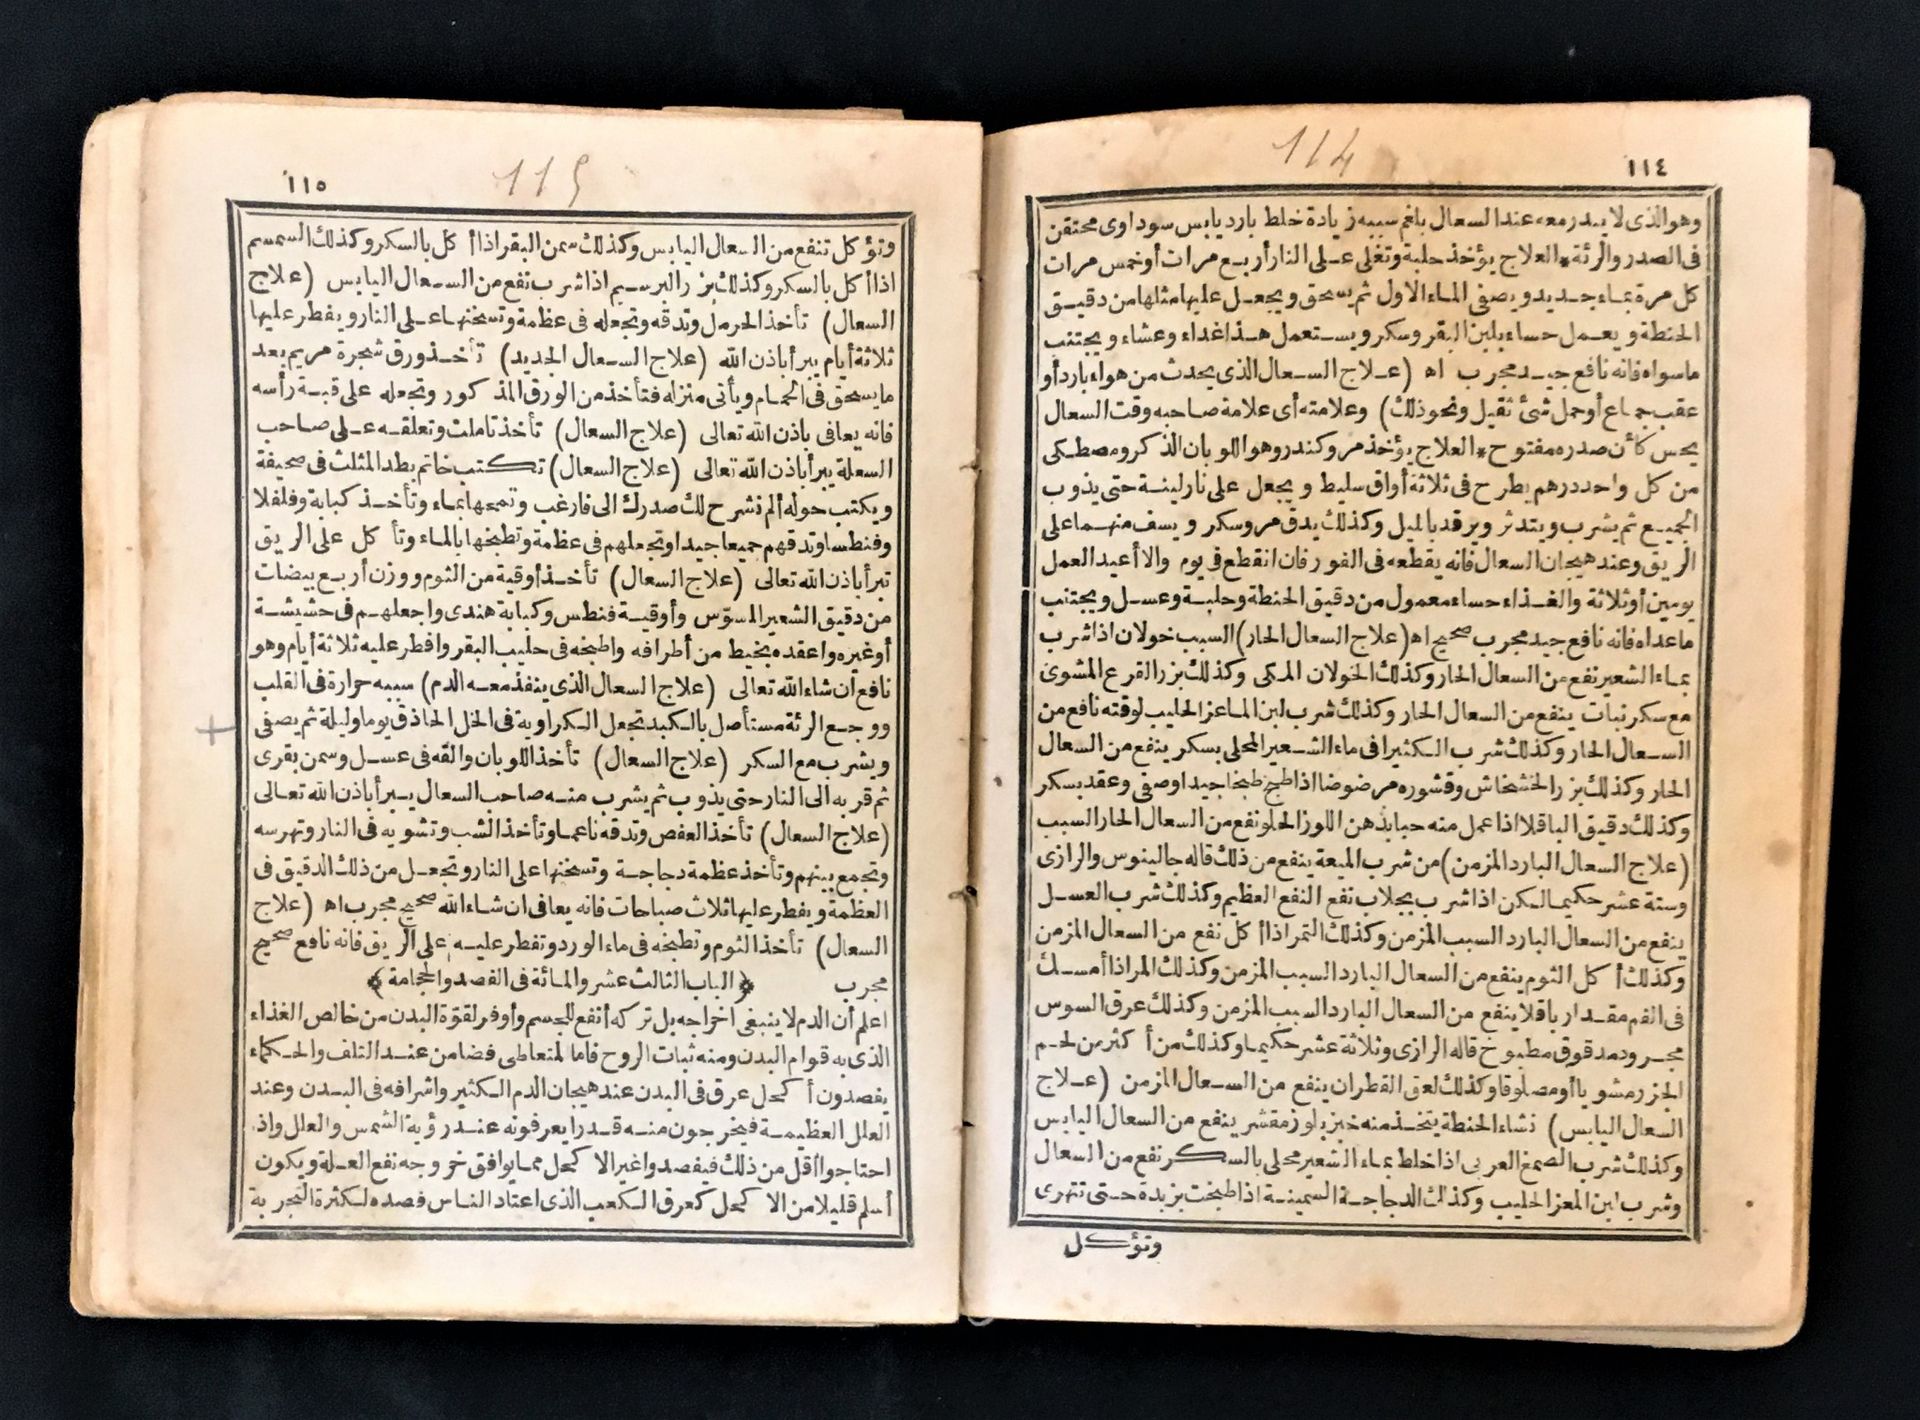 114
١١٤
وهو الذى لا يبدر معه عند السعال بلغم سببه زيادة خلط بارد يابس سوداوى محتقن
فى الصدر والرئة * العلاج يؤخذ حلبة وتغلى على النار أربع مرات أو خمس مرات
كل مرة بماء جديد ويصفى الماء الاول ثم يسحق ويجعل عليها مثلها من دقيق
الحنطة ويعمل حساء بلبن البقر وسكر ويستعمل هذا غداء وعشاء ويجتنب
ماسواه فانه نافع جيد مجرب اه (علاج السعال الذى يحدث من هواء بارد أو
عقب جماع أو حمل شئ ثقيل ونحو ذلك) وعلامته أى علامة صاحبه وقت السعال
يحس كأن صدره مفتوح * العلاج يؤخذ مر وكندر وهو اللوبان الذكر ومصطكى
من كل واحد درهم يطرح فى ثلاثة أواق سليط ويجعل على نار لينة حتى يذوب
الجميع ثم يشرب ويتدثر ويرقد بالليل وكذلك يدق مر وسكر ويسف منهما على
الريق وعند هيجان السعال فانه يقطعه فى الفور فان انقطع فى يوم والا أعيد العمل
يومين أو ثلاثة والغذاء حساء معمول من دقيق الحنطة وحلبة وعسل ويجتنب
ماعداه فانه نافع جيد مجرب صحيح اه (علاج السعال الحار) السبب خولان اذا شرب
بماء الشعير نفع من السعال الحار وكذلك الخولان المكى وكذلك بزر القرع المشوى
مع سكر نبات ينفع من السعال الحار وكذلك شرب لبن الماعز الحليب لوقته نافع من
السعال الحار وكذلك شرب الكثيرا فى ماء الشعير المحلى بسكر ينفع من السعال
الحار وكذلك بزر الخشخاش وقشوره مرضوضا اذا طبخ طبخا جيدا وصفى وعقد بسكر
وكذلك دقيق الباقلا اذا عمل منه حبا بدهن اللوز الحلو نفع من السعال الحار السبب
(علاج السعال البارد المزمن) من شرب الميعة ينفع من ذلك قاله جالينوس والرازى
وستة عشر حكيما لكن اذا شرب بجلاب نفع النفع العظيم وكذلك شرب العسل
ينفع من السعال البارد السبب المزمن وكذلك التمر اذا أكل نفع من السعال المزمن
وكذلك أكل الثوم ينفع من السعال البارد السبب المزمن وكذلك المر اذا أمسك
فى الفم مقدار باقلا ينفع من السعال البارد السبب المزمن وكذلك عرق السوس
مجرود مدقوق مطبوخ قاله الرازى وثلاثة عشر حكيما وكذلك من أكثر من لحم
الجزر مشويا أو مصلوقا وكذلك لعق القطران ينفع من السعال المزمن (علاج
السعال اليابس) نشاء الحنطة يتخذ منه خبز بلوز مقشر ينفع من السعال اليابس
وكذلك شرب الصمغ العربى اذا خلط بماء الشعير محلى بالسكر نفع من السعال
وشرب لبن المعز الحليب وكذلك الدجاجة السمينة اذا طبخت بزبدة حتى تتهرى
وتؤكل
115
١١٥
وتؤكل تنفع من السعال اليابس وكذلك سمن البقر اذا أكل بالسكر وكذلك السمسم
اذا أكل بالسكر وكذلك بزر البرسيم اذا شرب نفع من السعال اليابس (علاج
السعال) تأخذ الحرمل وتدقه وتجعله فى عظمة وتسخنها على النار ويفطر عليها
ثلاثة أيام يبرأ باذن الله (علاج السعال الجديد) تأخذ ورق شجرة مريم بعد
مايسحق فى الحمام ويأتى منزله فتأخذ من الورق المذكور وتجعله على قبة رأسه
فانه يعافى باذن الله تعالى (علاج السعال) تأخذ تاملت وتعلقه على صاحب
السعلة يبرأ باذن الله تعالى (علاج السعال) تكتب خاتم بطد المثلث فى صحيفة
ويكتب حوله ألم نشرح لك صدرك الى فارغب وتمحها بماء وتأخذ كبابة وفلفلا
وفنطسا وتدقهم جميعا جيدا وتجعلهم فى عظمة وتطبخها بالماء وتأكل على الريق
تبرأ باذن الله تعالى (علاج السعال) تأخذ أوقية من الثوم ووزن أربع بيضات
من دقيق الشعير المسوّس وأوقية فنطس وكبابة هندى واجعلهم فى حشيشة
أو غيره واعقده بخيط من أطرافه واطبخه فى حليب البقر وافطر عليه ثلاثة أيام وهو
نافع ان شاء الله تعالى (علاج السعال الذى ينفذ معه الدم) سببه حرارة فى القلب
ووجع الرئة مستأصل بالكبد تجعل الكراوية فى الخل الحاذق يوما وليلة ثم يصفى
ويشرب مع السكر (علاج السعال) تأخذ اللوبان والقه فى عسل وسمن بقرى
ثم قربه الى النار حتى يذوب ثم يشرب منه صاحب السعال يبرأ باذن الله تعالى
(علاج السعال) تأخذ العفص وتدقه ناعما وتأخذ الشب وتشويه فى النار وتهرسه
وتجمع بينهم وتأخذ عظمة دجاجة وتسخنها على النار وتجعل من ذلك الدقيق فى
العظمة ويفطر عليها ثلاث صباحات فانه يعافى ان شاء الله صحيح مجرب اه (علاج
السعال) تأخذ الثوم وتطبخه فى ماء الورد وتفطر عليه على الريق فانه نافع صحيح
مجرب ﴿الباب الثالث عشر والمائة فى الفصد والحجامة﴾
اعلم أن الدم لا ينبغى اخراجه بل تركه أنفع للجسم وأوفر لقوة البدن من خالص الغذاء
الذى به قوام البدن ومنه ثبات الروح فاما لمتعاطى فضا من عند التلف والحكماء
يفصدون أكحل عرق فى البدن عند هيجان الدم الكثير واشرافه فى البدن وعند
العلل العظيمة فيخرجون منه قدرا يعرفونه عند رؤية الشمس والعلل واذ
احتاجوا أقل من ذلك فيفصدوا غير الاكحل مما يوافق خروجه نفع العلة ويكون
أسلم قليلا من الاكحل كعرق الكعب الذى اعتاد الناس فصده لكثرة التجربة